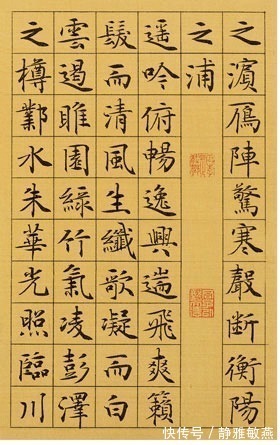 之濱鴈陣驚寒聲斷衡陽
之浦
遥吟俯暢逸興遄飛爽籟
髮而清風生纖歌凝而白
雲遏睢園綠竹氣凌彭澤
之樽鄴水朱華光照臨川
快传号 / 静雅敏燕